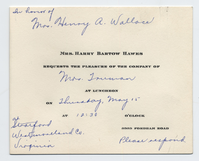 In honor of
Mrs. Henry A. Wallace
MRS. HARRY BARTOW HAWES
REQUESTS THE PLEASURE OF THE COMPANY OF
Mrs. Truman
AT LUNCHEON
ON Thursday, May 15
AT 1:30 O'CLOCK
At
Stratford
Westmoreland Co.
Virginia
ROAD
Please respond.